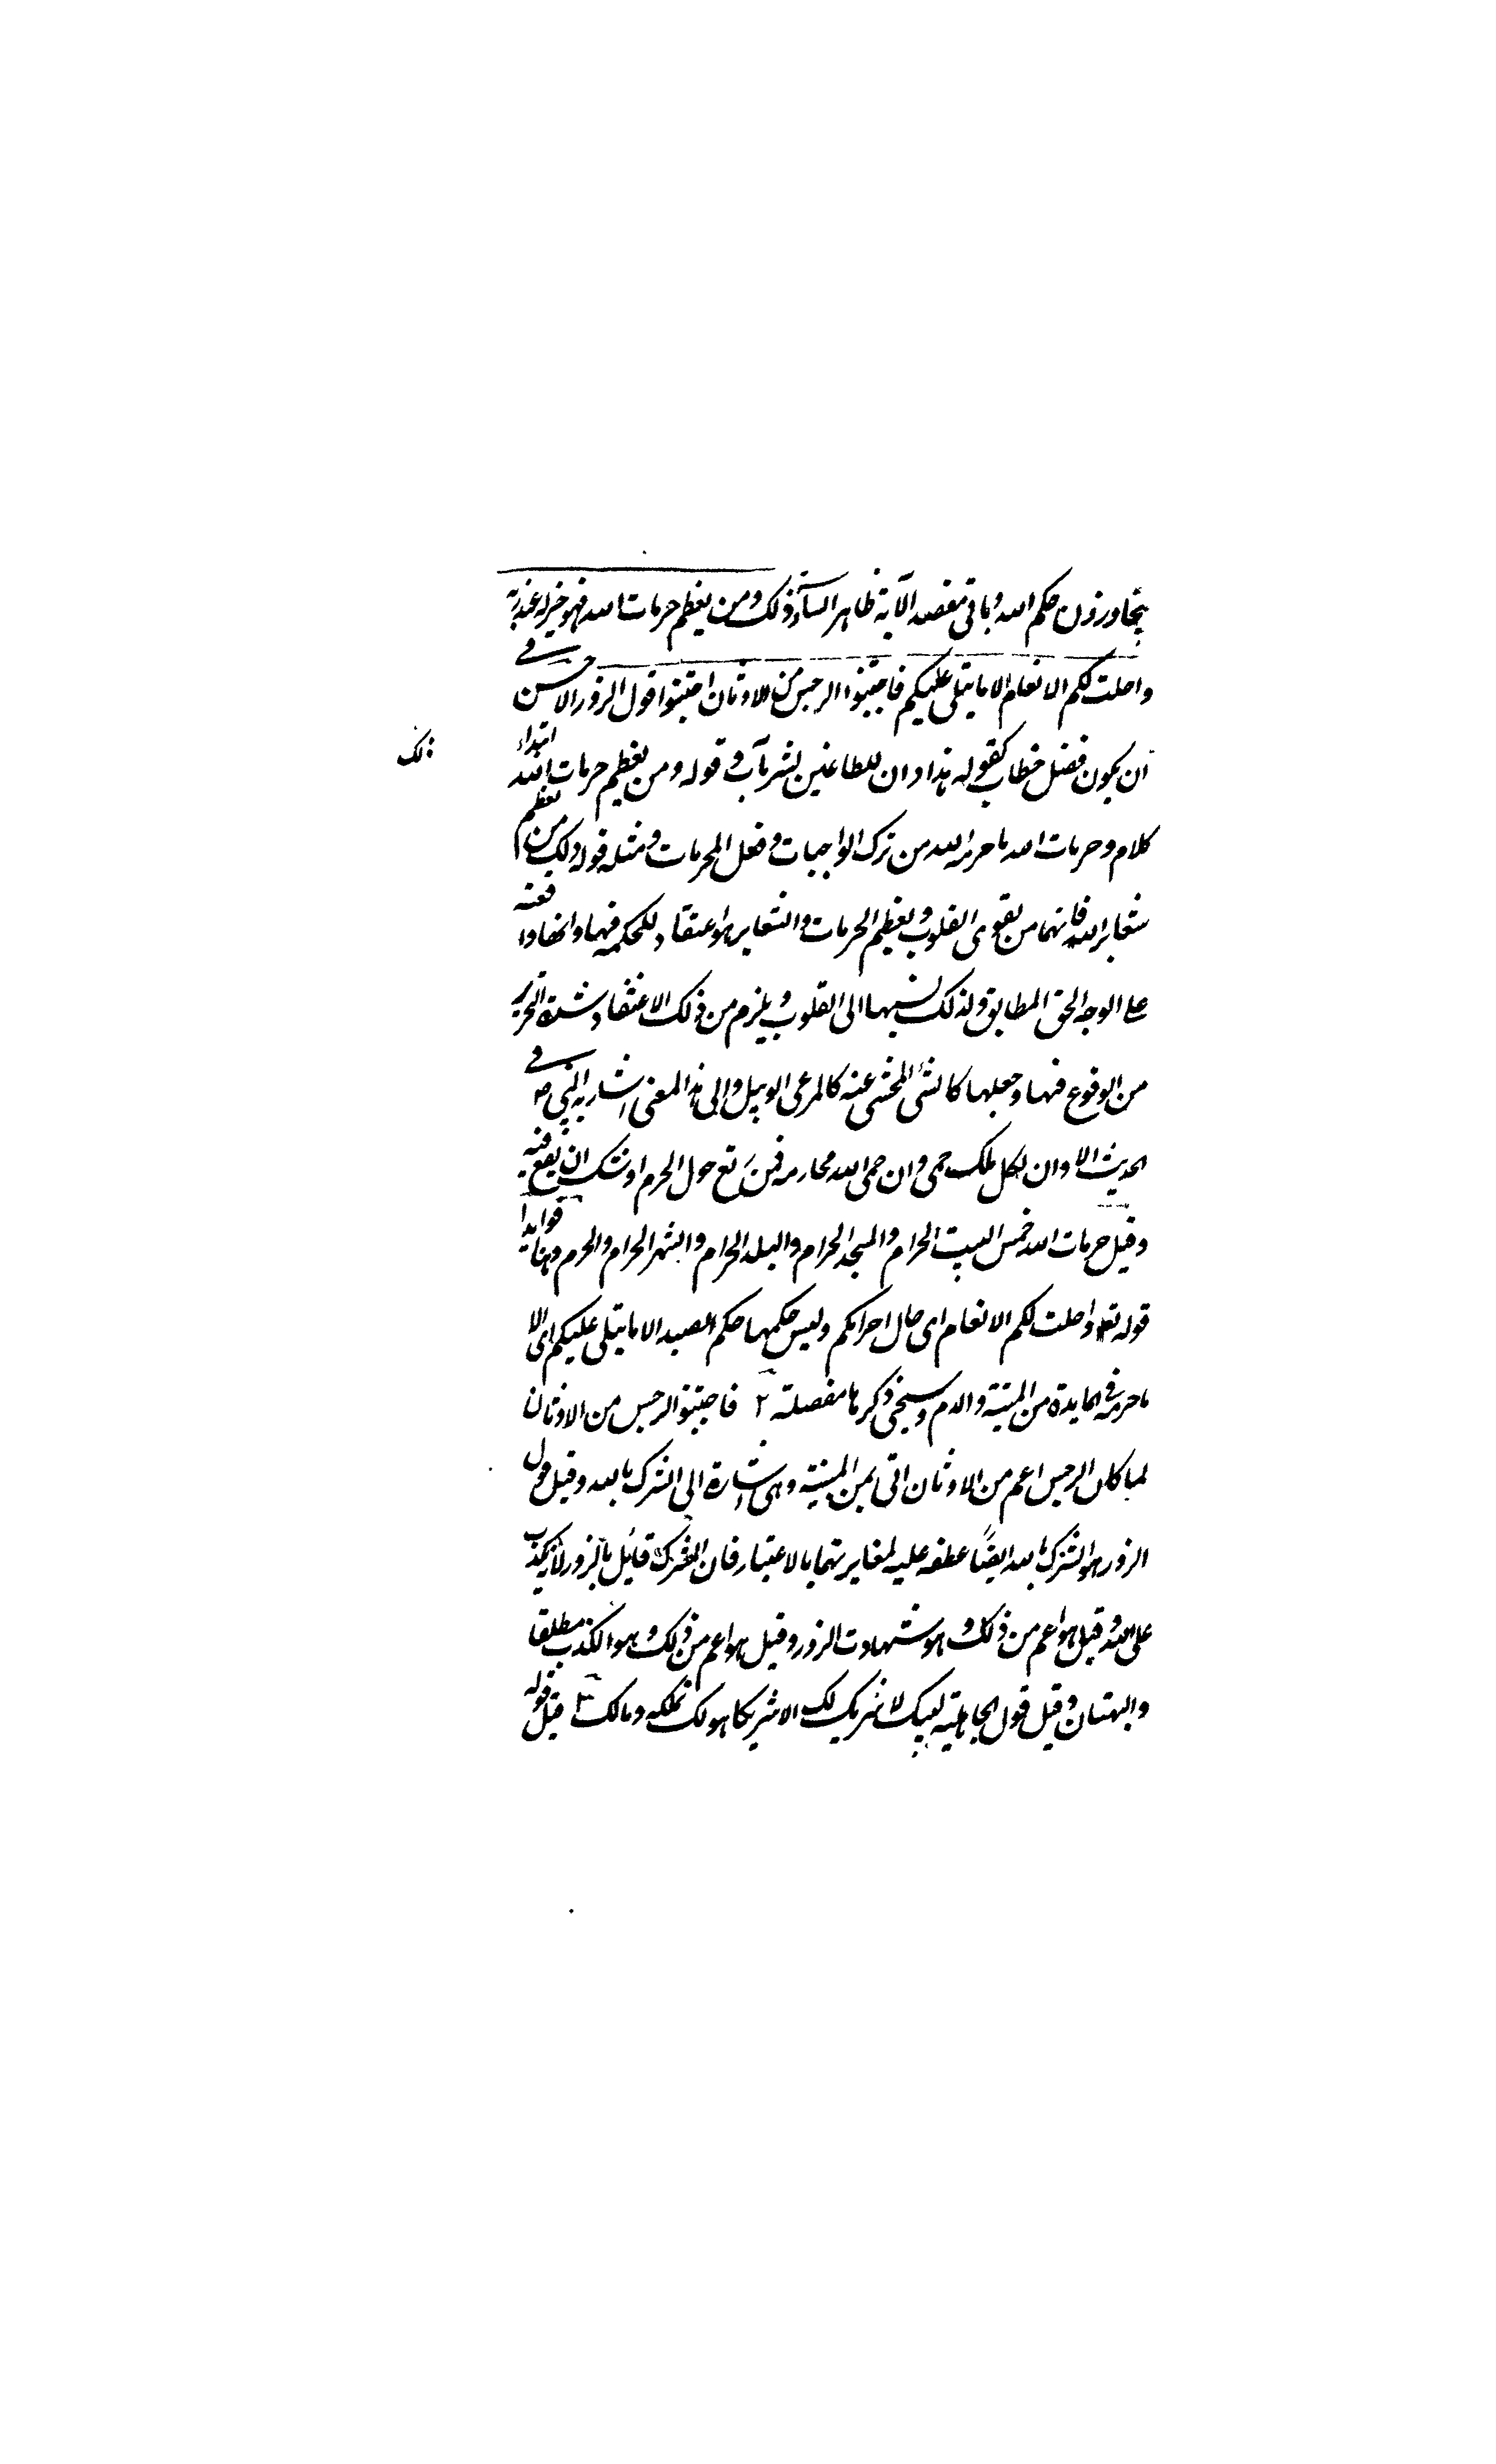 يتجاوزون حكم الله وباقي مقصد الآية ظاهر السادسة ذلك ومن يعظم حرمات الله فهو خير له عند ربه
واحلت لكم الانعام الا ما يتلى عليكم فاجتنبوا الرجس من الاوثان واجتنبوا قول الزور الاحسن في
ذلك
ان يكون فصل خطاب كقوله هذا وان للطاغين لشر مآب وقوله ومن يعظم حرمات الله ابتداء
كلام وحرمات الله ما حرمه الله من ترك الواجبات وفعل المحرمات ومثله قوله ذلك ومن يعظم
شعاير الله فانها من تقوى القلوب وتعظيم الحرمات والشعاير هو اعتقاد الحكمة فيها وانها واقعة
على الوجه الحق المطابق ولذلك نسبها الى القلوب ويلزم من ذلك الاعتقاد شدة التحرز
من الوقوع فيها وجعلها كالشئ المحتمى عنه كالمرعى الوبيل والى هذا المعنى اشار به النبي ص في
الحديث الا وان لكل ملك حمى وان حمى الله محارمه فمن رتع حول الحرم اوشك ان يقع فيه
وقيل حرمات الله خمس البيت الحرام والمسجد الحرام والبلد الحرام والشهر الحرام والمحرم وهنا فوايد ا
قوله تع واحلت لكم الانعام اى حال احرامكم وليس حكمها حكم الصيد الا ما يتلى عليكم اى الا
ما حرمه في المايدة من الميتة والدم وسيجئ ذكرها مفصلة ٢ فاجتنبوا الرجس من الاوثان
لما كان الرجس اعم من الاوثان اتى بمن المبينة وهى اشارة الى الشرك بالله وقيل قول
الزور هو الشرك بالله ايضاً عطفه عليه لمغايرتهما بالاعتبار فان المشرك قائل بالزور لانه يكذب
على الله وقيل هو اعم من ذلك وهو شهادت الزور وقيل هو اعم من ذلك وهو الكذب مطلقا
والبهتان وقيل قول الجاهلية لبيك لا شريك لك الا شريكا هو لك تملكه وما ملك ٣ قيل قوله